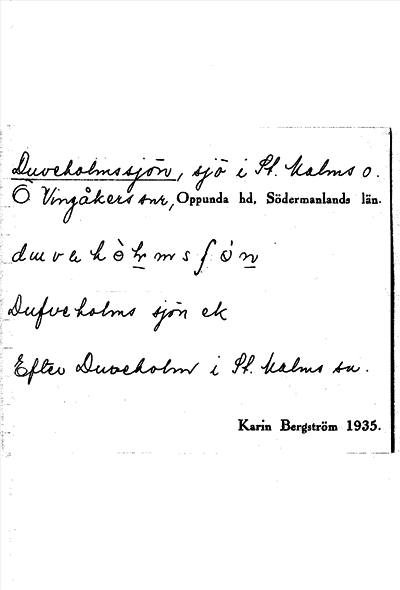 Duveholmssjön, sjö i St. Malms o.
Ö Vingåkers snr, Oppunda hd, Södermanlands län.
duvahòlmsʃón
Dufveholms sjön ek
Efter Duveholm i St. Malms sn.
Karin Bergström 1935.